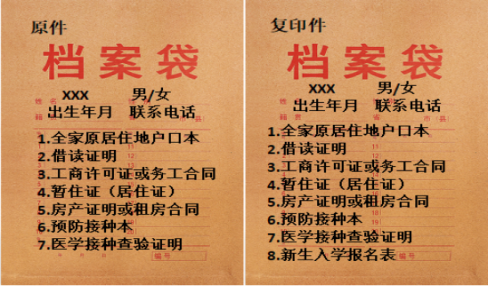 原件
档案袋
XXX 男/女
出生年月 联系电话
1.全家原居住地户口本
2.借读证明
3.工商许可证或务工合同
4.暂住证（居住证）
5.房产证明或租房合同
6.预防接种本
7.医学接种查验证明
编号
复印件
档案袋
XXX 男/女
出生年月 联系电话
1.全家原居住地户口本
2.借读证明
3.工商许可证或务工合同
4.暂住证（居住证）
5.房产证明或租房合同
6.预防接种本
7.医学接种查验证明
8.新生入学报名表
编号